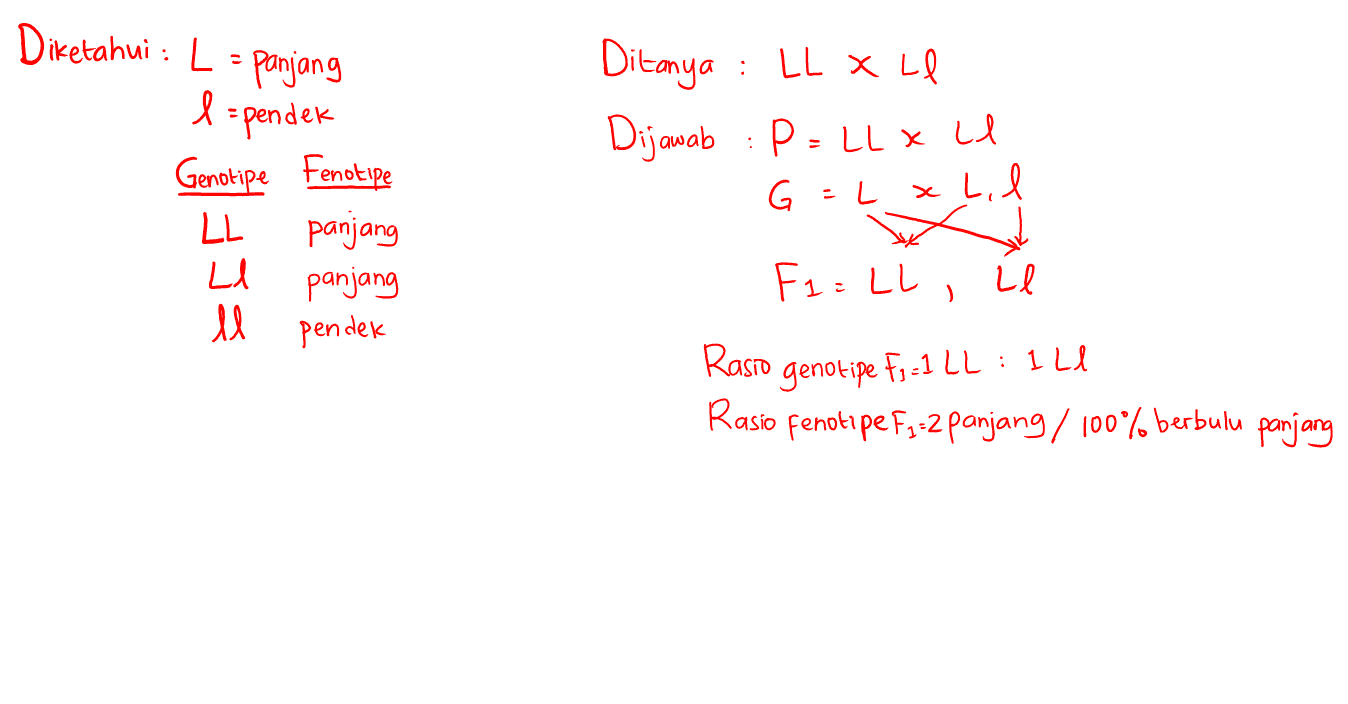 Diketahui : L = panjang
l = pendek
Genotipe Fenotipe
LL panjang
Ll panjang
ll pendek
Ditanya : LL x Ll
Dijawab : P = LL x Ll
G = L x L, l
F1 = LL , Ll
Rasio genotipe F1 = 1 LL : 1 Ll
Rasio Fenotipe F1 = 2 panjang / 100% berbulu panjang